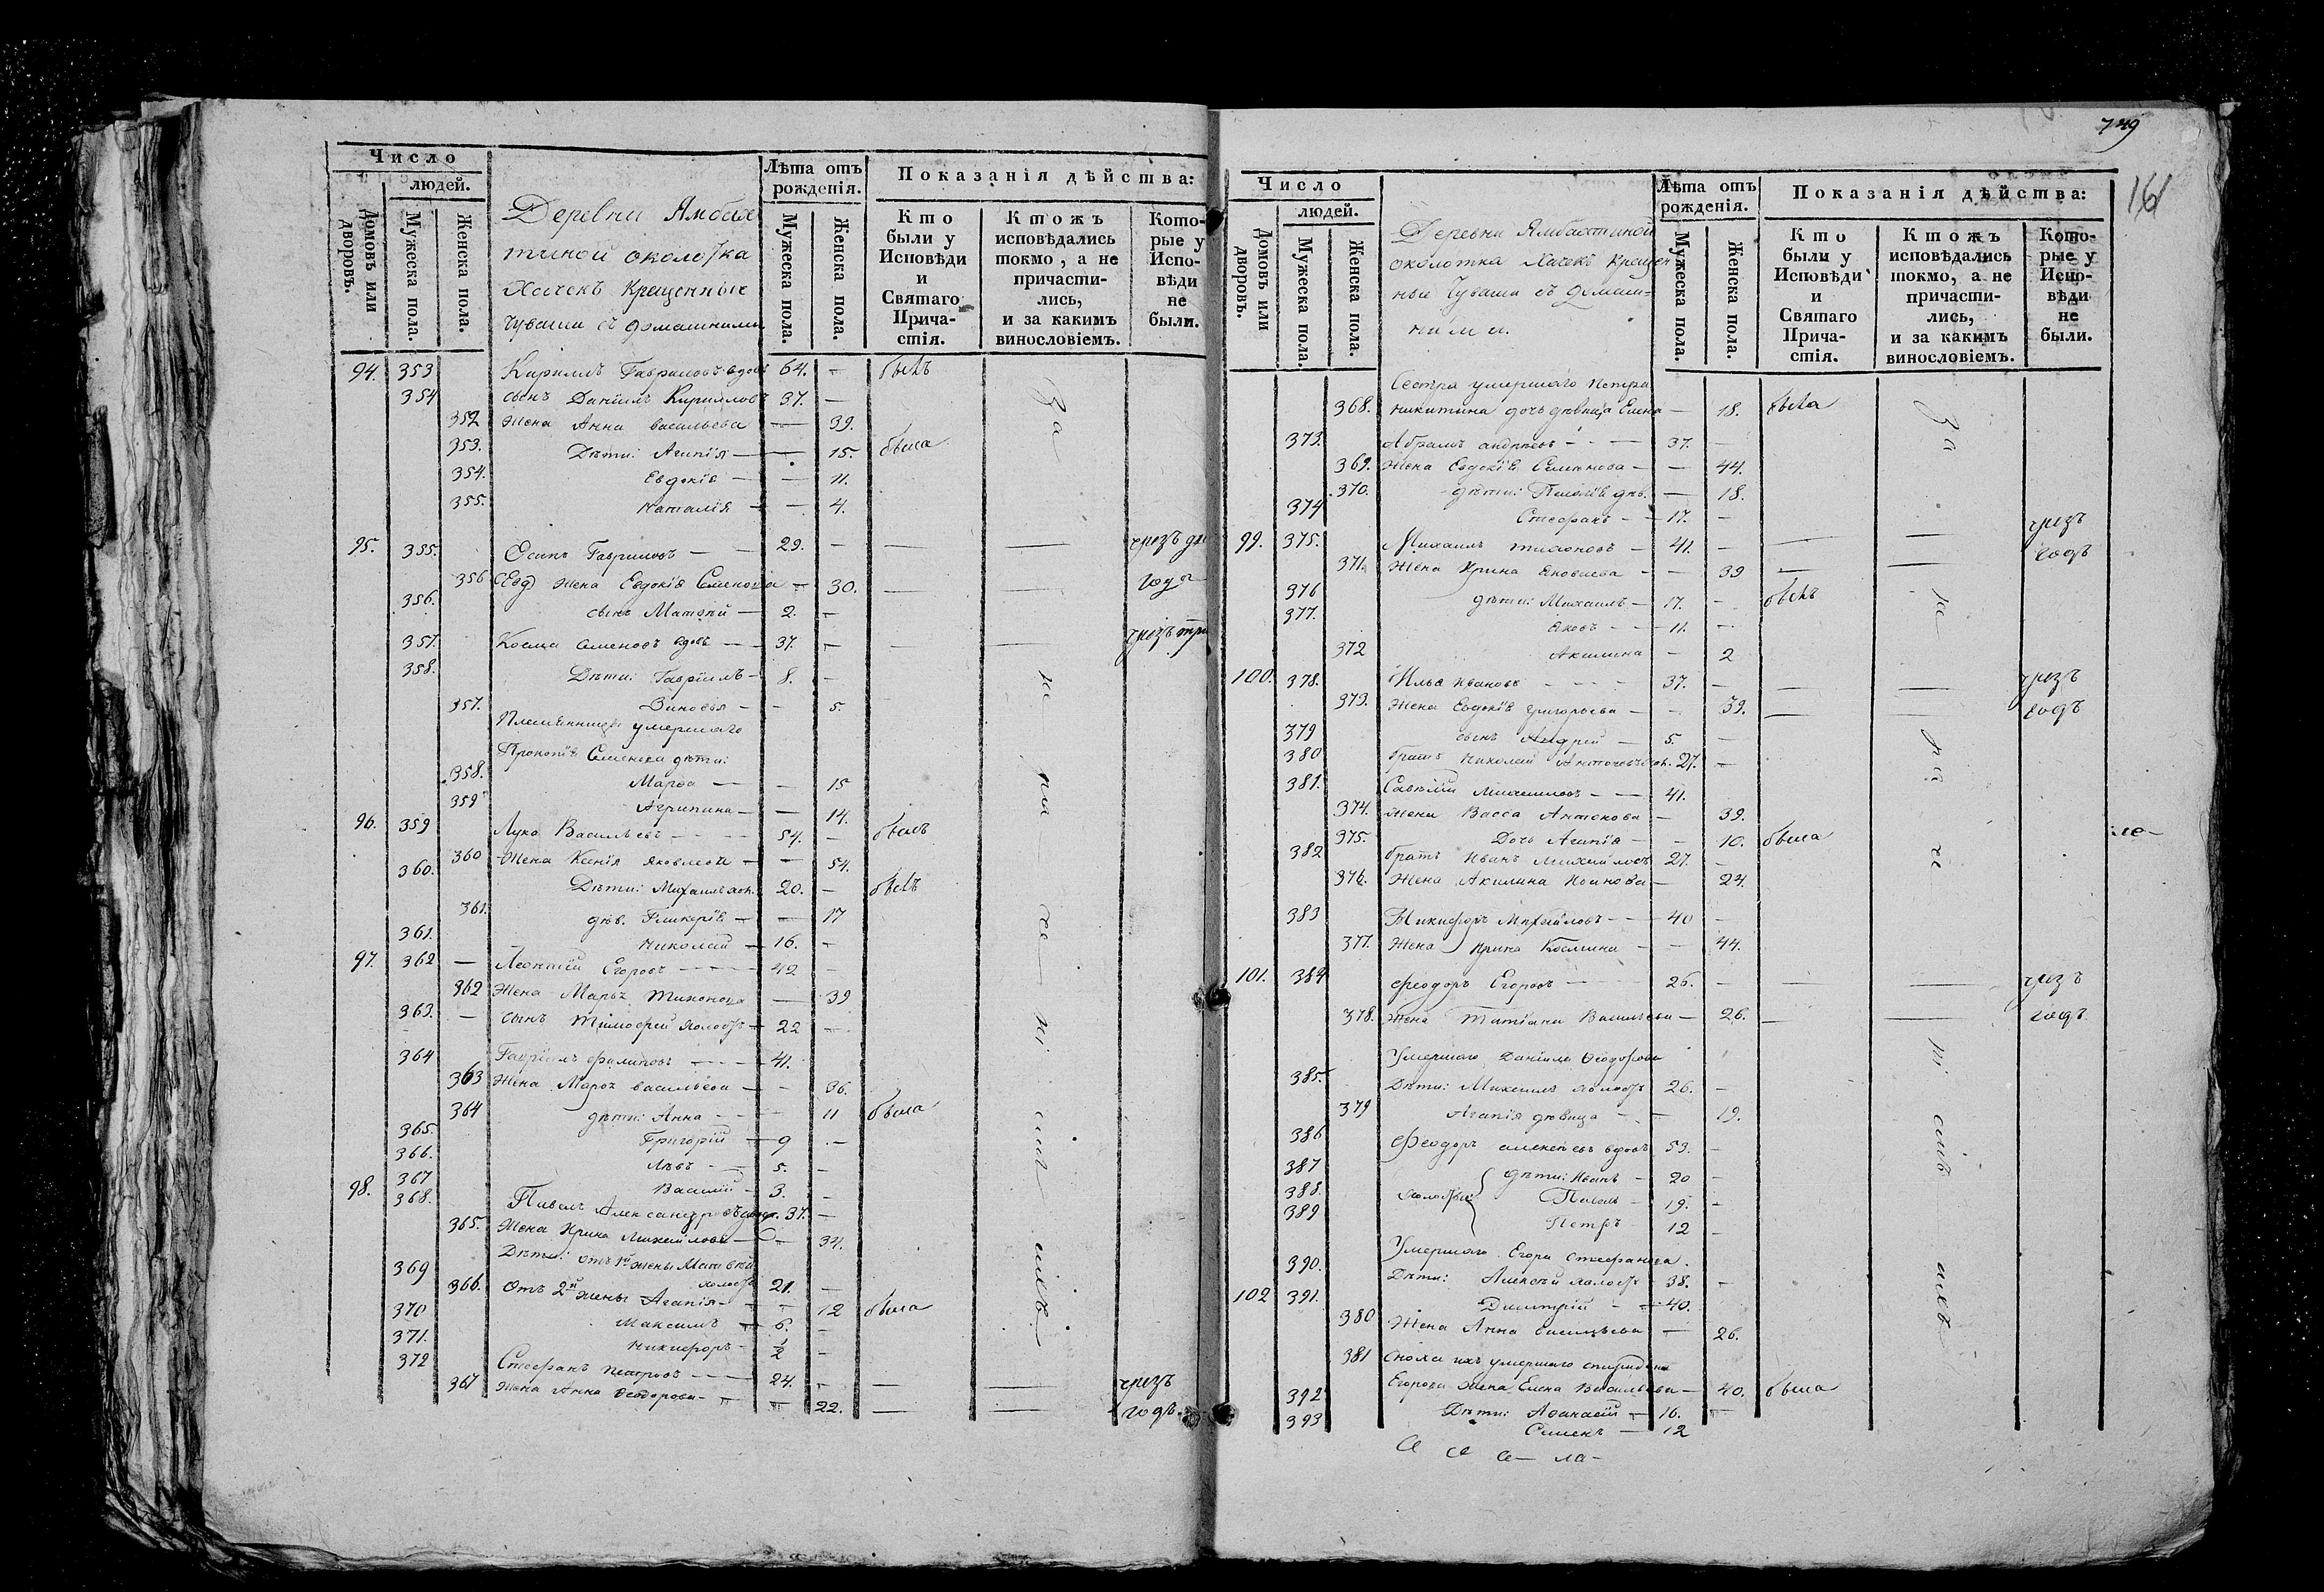 Число
людей.
Домовъ или дворовъ.
Мужеска пола.
Женска пола.
Деревни Ямбах
тиной околотка
Хачекъ Крещенныя
Чуваши съ домашними
Лѣта отъ рожденія.
Мужеска пола.
Женска пола.
Показанія дѣйства:
Кто были у Исповѣди и Святаго Причастія.
Ктожъ исповѣдались токмо, а не причастились, и за какимъ винословіемъ.
Которые у Исповѣди не были.
94. 353 Кирилъ Гавриловъ вдовъ 64. — былъ
354 сынъ Даніилъ Кирилловъ 37. —
352 Жена Анна Васильева — 39.
353. Дѣти: Агапія — 15. была
354. Евдокія — 11.
355. Наталія — 4.
95. 355. Осипъ Гавриловъ — 29. — — — чрезъ два
356 Жена Евдокія Семенова — 30. — — года
356. сынъ Матвѣй — 2. —
357. Косма Семеновъ вдовъ — 37. — — — чрезъ три
358. Дѣти: Гавріилъ — 8. —
357. Зиновья — 5
Племянницы умершаго
Прокопія Семенова дѣти:
358. Марѳа — 15
359 Агрипина — 14.
96. 359 Лука Васильевъ — 54. — былъ
360 Жена Ксенія Яковлева — 54.
360. Дѣти: Михаилъ хол. 20. — былъ
361. дѣв. Гликерія — 17
361. Николай — 16. —
97. 362 — Леонтій Егоровъ — 42 —
362 Жена Марѳа Тихонова — 39
363. — сынъ Тимофей холостъ — 22 —
364 Гавріилъ Филиповъ — 41.
363 Жена Марѳа Васильева — 36.
364 дѣти: Анна — 11 была
365. Григорій — 9 —
366. Левъ — 5. —
367 Василій — 3. —
98. 368. Павелъ Александровъ 37. —
365. Жена Ирина Михайлова — 34.
Дѣти: отъ 1й жены Матвѣй
369 холостъ 21. —
366. Отъ 2й жены Агапія — 12 была
370 Максимъ — 6. —
371. Никифоръ — ½ —
372 Стефанъ Петровъ — 24. — — — чрезъ
367 Жена Анна Феодорова — 22. — — годъ.
За не при че ні емъ
749
161
Число
людей.
Домовъ или дворовъ.
Мужеска пола.
Женска пола.
Деревни Ямбахтиной
околотка Хачекъ Крещен
ныя Чуваши съ домаш=
ними.
Лѣта отъ рожденія.
Мужеска пола.
Женска пола.
Показанія дѣйства:
Кто были у Исповѣди и Святаго Причастія.
Ктожъ исповѣдались токмо, а не причастились, и за какимъ винословіемъ.
Которые у Исповѣди не были.
Сестра умершаго Петра
368. Никитина дочь дѣвица Елена — 18. была
373. Абрамъ Андреевъ — 37. —
369. Жена Евдокія Семенова — 44.
370. дѣти: дѣв. — 18.
374 Стефанъ — 17. —
99. 375. Михаилъ Тихоновъ — 41. — — — чрезъ
371. Жена Ирина Яковлева — 39 — — годъ
376 дѣти: Михаилъ — 17. — былъ
377. Яковъ — 11. —
372 Акилина — 2
100. 378. Илья Ивановъ — 37. — — — чрезъ
373. Жена Евдокія Григорьева — 39. — — годъ
379 сынъ Андрей — 5. —
380 братъ Николай хол. 27. —
381. Савелій Михайловъ — 41.
374. Жена Васса Антонова — 39.
375. Дочь Агапія — 10. была
382 братъ Иванъ Михайловъ 27. —
376. Жена Акилина — 24.
383 Никифоръ Михайловъ — 40 —
377. Жена Ирина Космина — 44.
101. 384 Феодоръ Егоровъ — 26. — — — чрезъ
378. Жена Татіана Васильева — 26. — — годъ.
Умершаго Даніила Феодорова
385. Дѣти: Михаилъ холостъ 26. —
379 Агапія дѣвица — 19.
386 Феодоръ Алексѣевъ вдовъ 53. —
387 дѣти: Иванъ — 20 —
388. холосты: Павелъ — 19. —
389 Петръ 12 —
Умершаго Егора Стефанова.
390. Дѣти: Алексѣй холостъ 38. —
102 391. Димитрій — 40.
380 Жена Анна Васильева — 26.
381 Сноха ихъ умершаго Спиридона
Егорова жена Елена Васильева — 40. была
392 Дѣти: Афанасій — 16. —
393 Семенъ — 12